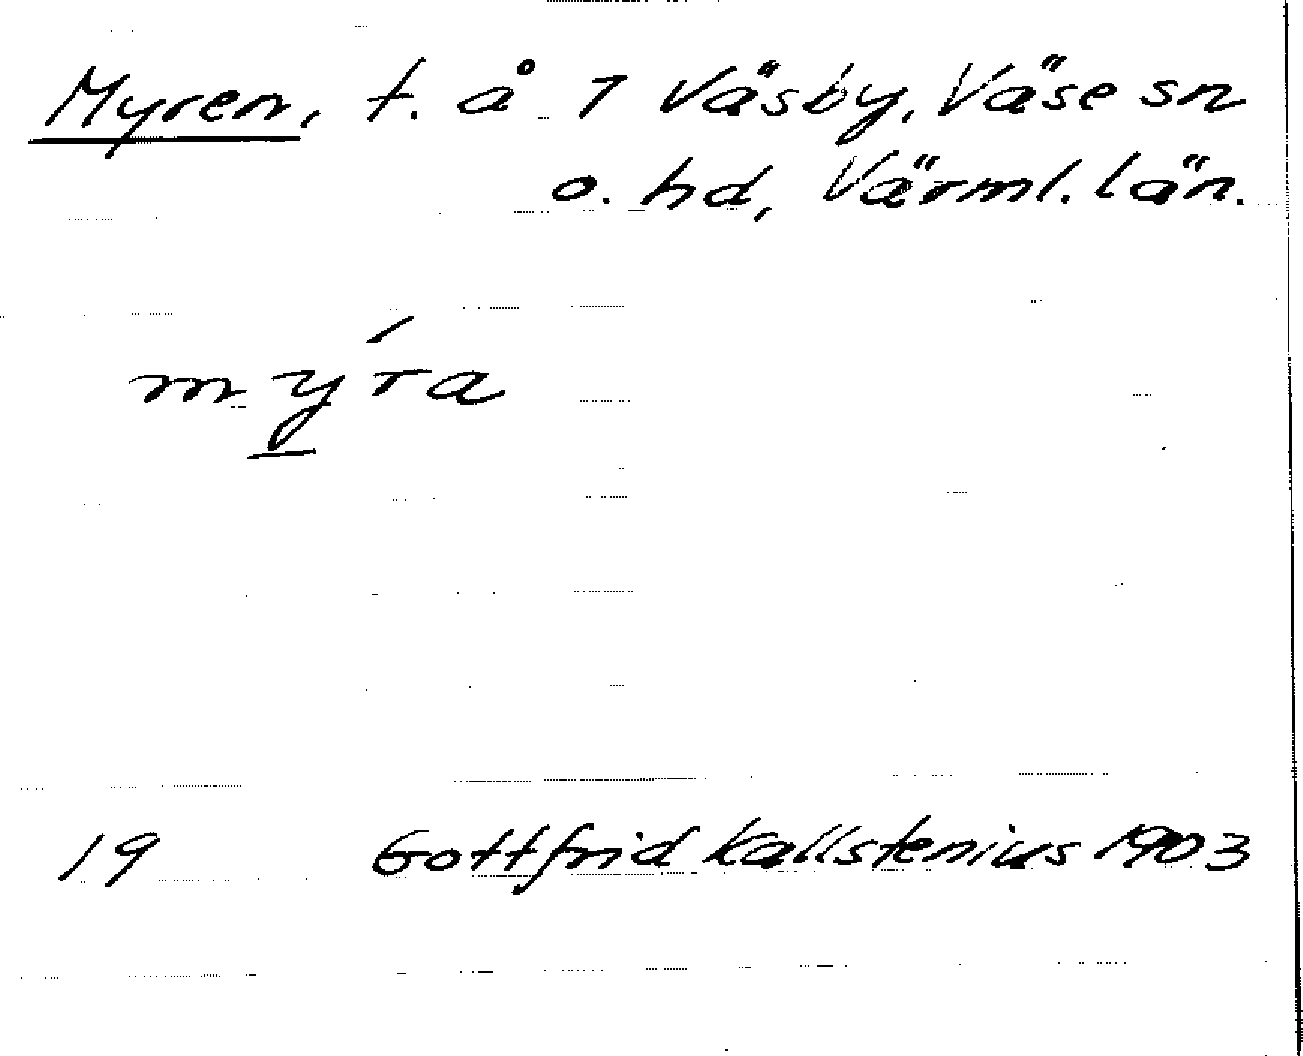 Myren, t. å 1 Väsby, Väse sn
o. hd, Värml. län.
my̲´ra
19 Gottfrid Kallstenius 1903